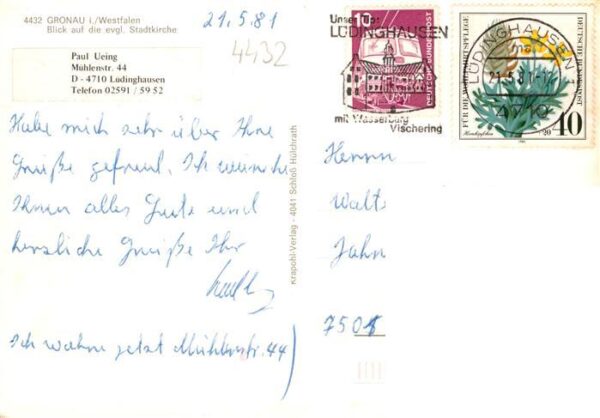 4432 GRONAU i./Westfalen
Blick auf die evgl. Stadtkirche
21.5.81
4432
Paul Ueing
Mühlenstr. 44
D - 4710 Lüdinghausen
Telefon 02591 / 59 52
Habe mich sehr über Ihre
Grüße gefreut. Ich wünsche
Ihnen alles Gute und
herzliche Grüße Ihr
Ich wohne jetzt Mühlenstr. 44)
Krapohl-Verlag - 4041 Schloß Hülchrath
Unser
LÜDINGHAUSEN
mit Wasserburg
Vischering
10
DEUTSCHE BUNDESPOST
LÜDINGHAUSEN 1
21.5.81-17
4710
FÜR DIE WOHLFAHRTSPFLEGE
DEUTSCHE BUNDESPOST
+20
40
Herrn
Jahn
750